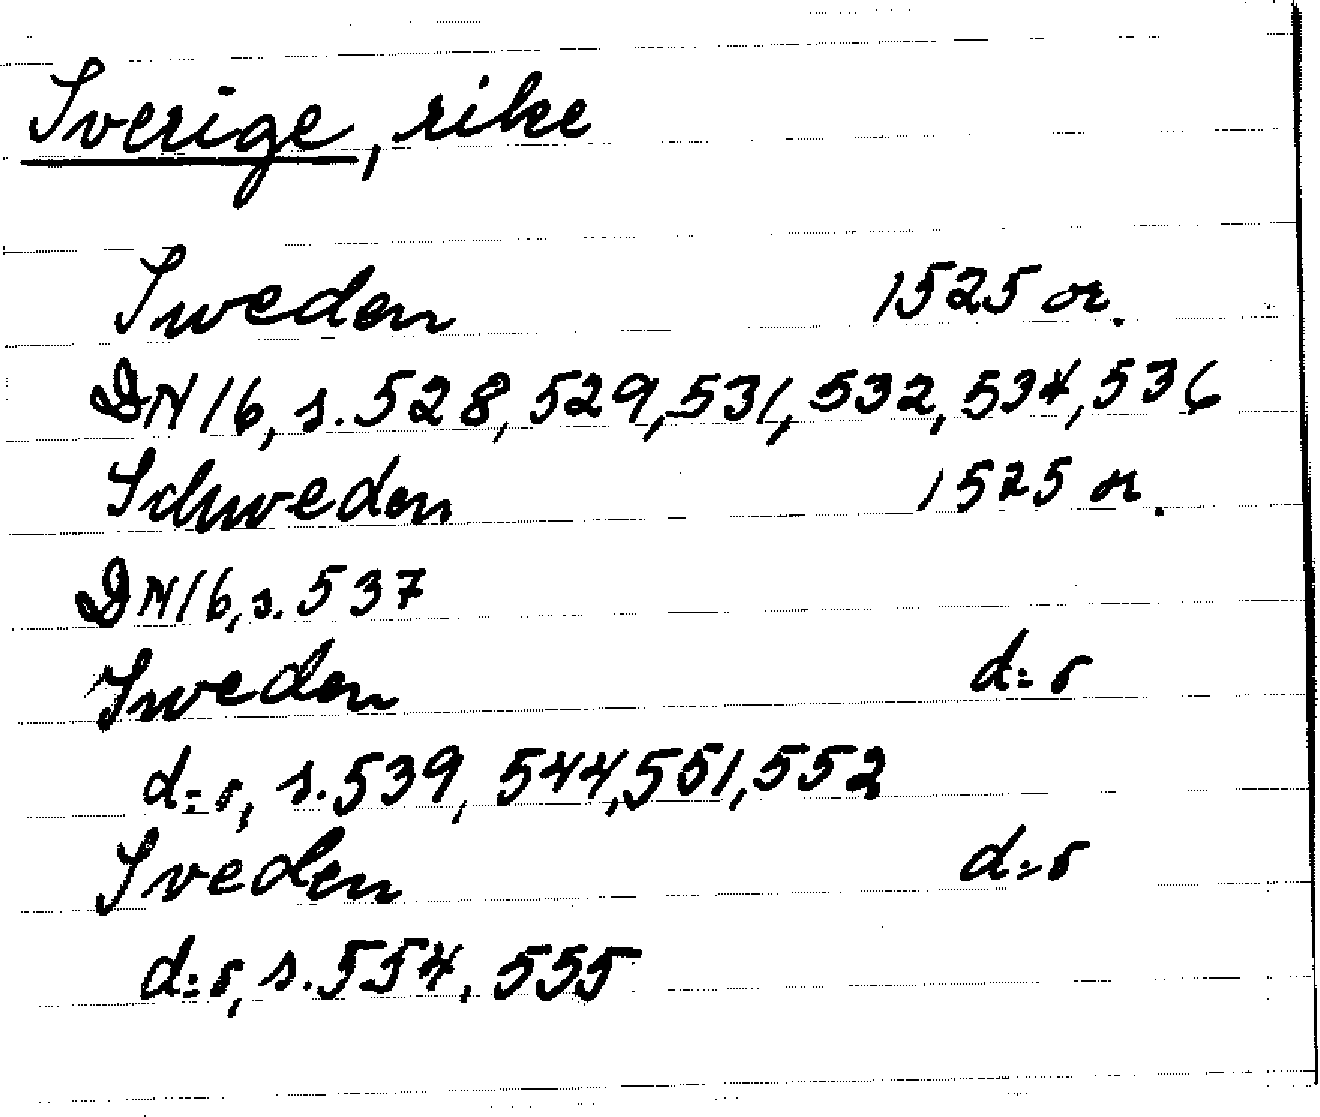 Sverige, rike
Sweden 1525 or.
DN 16, s. 528, 529, 531, 532, 534, 536
Schweden 1525 or.
DN 16, s. 537
Sweden d:o
d:o, s. 539, 544, 551, 552
Sveden d:o
d:o, s. 554, 555